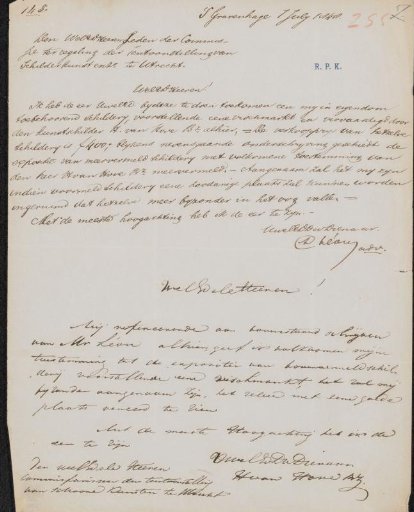 148.
S'Gravenhage 7 July 1841
255
Den WelEd. Heeren Leden der Commis-
sie ter regeling der tentoonstelling van
Schilderkunst enz. te Utrecht.
R. P. K.
WelEd. Heeren!
Ik heb de eer UwelEd bydeze te doen toekomen een my in eigendom
toebehoorend schildery, voorstellende eene vischmarkt en vervaardigd door
den kunstschilder H. van Hove Bz. alhier, – De verkoopprys van hetzelve
schildery is ƒ 400,
expositie van voornoemd schildery met volkomene toestemming van
den Heer H van Hove Bz. voornoemd. – Aangenaam zal het my zyn
indien voorschr. schildery eene zoodanige plaats zal kunnen worden
ingeruimd dat hetzelve meer byzonder in het oog valle –
Met de meeste hoogachting heb ik de eer te zyn –
UwelEd. Dw. Dienaar.
adv.
Wel Edele Heeren!
Mij refererende aan bovenstaand schrijven
van Mr alhier geef ik volkomen mijn
toestemming tot de expositie van bovengemeld schil-
derij voorstellende eene vischmarkt, het zal mij
bijzonder aangenaam zijn, het zelve met eene goede
plaats vereerd te zien
Met de meeste Hoogachting heb ik de
eer te zijn
UwelEd Dw Dienaar
H van Hove Bz
Den welEdele Heeren
Commissarissen der tentoonstelling
van schoone Kunsten te Utrecht